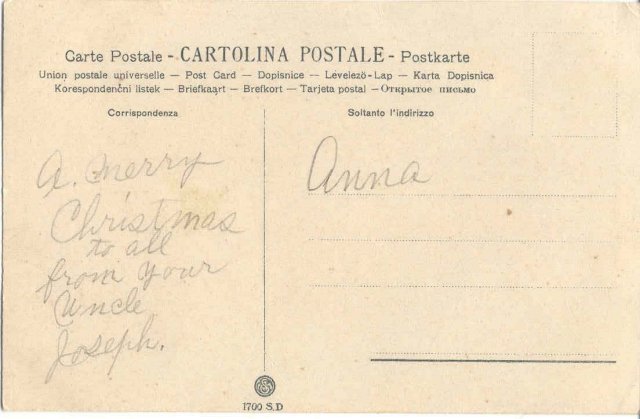 Carte Postale - CARTOLINA POSTALE - Postkarte
Union postale universelle — Post Card — Dopisnice — Levelezö-Lap — Karta Dopisnica
Korespondenčni listek — Briefkaart — Brefkort — Tarjeta postal — Открытое письмо
Corrispondenza
Soltanto l'indirizzo
A. merry
Christmas
to all
from your
Uncle
Joseph.
Anna
1700 S.D